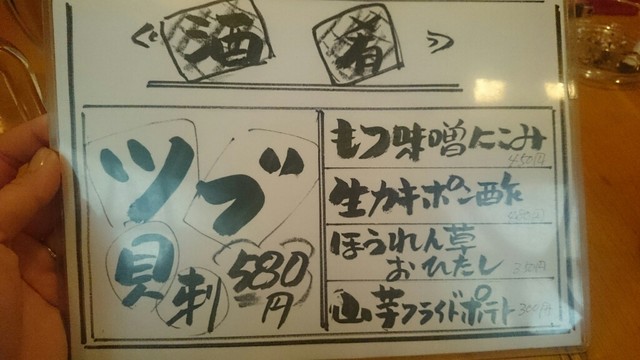 ≪酒肴≫
ツブ
貝刺 580円
もつ味噌にこみ 450円
生カキポン酢 480円
ほうれん草
おひたし 350円
山芋フライドポテト 300円